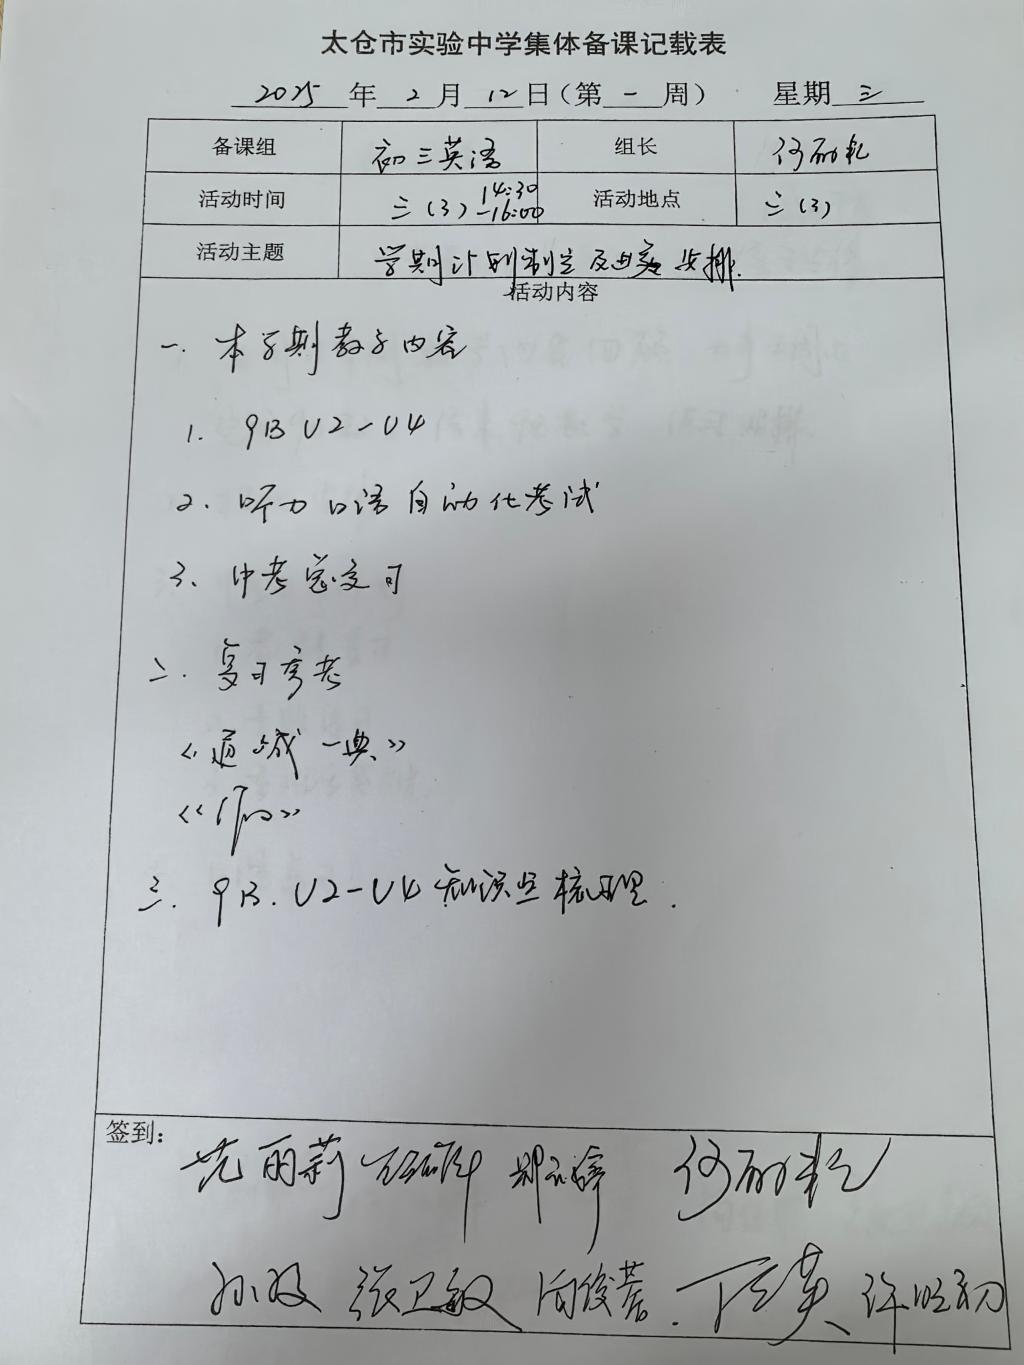 太仓市实验中学集体备课记载表
2025年 2 月 12 日（第 一 周） 星期 三
备课组 初三英语 组长
活动时间 三（3）14:30-16:00 活动地点 三（3）
活动主题 学期计划制定及进度安排.
活动内容
一. 本学期教学内容
1. 9B U2-U4
2. 听力口语自动化考试
3. 中考总复习
二. 复习参考
《通城一典》
三. 9B. U2-U4 知识点梳理.
签到：
范丽莉
张卫敏 丁英